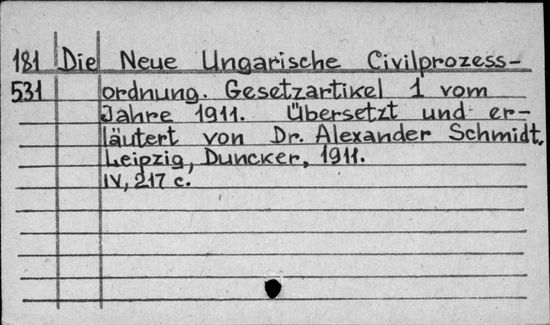 181 Die Neue Ungarische Civilprozess-
531 ordnung. Gesetzartikel 1 vom
Jahre 1911. Übersetzt und er-
läutert von Dr. Alexander Schmidt.
Leipzig, Duncker, 1911.
IV, 217 c.